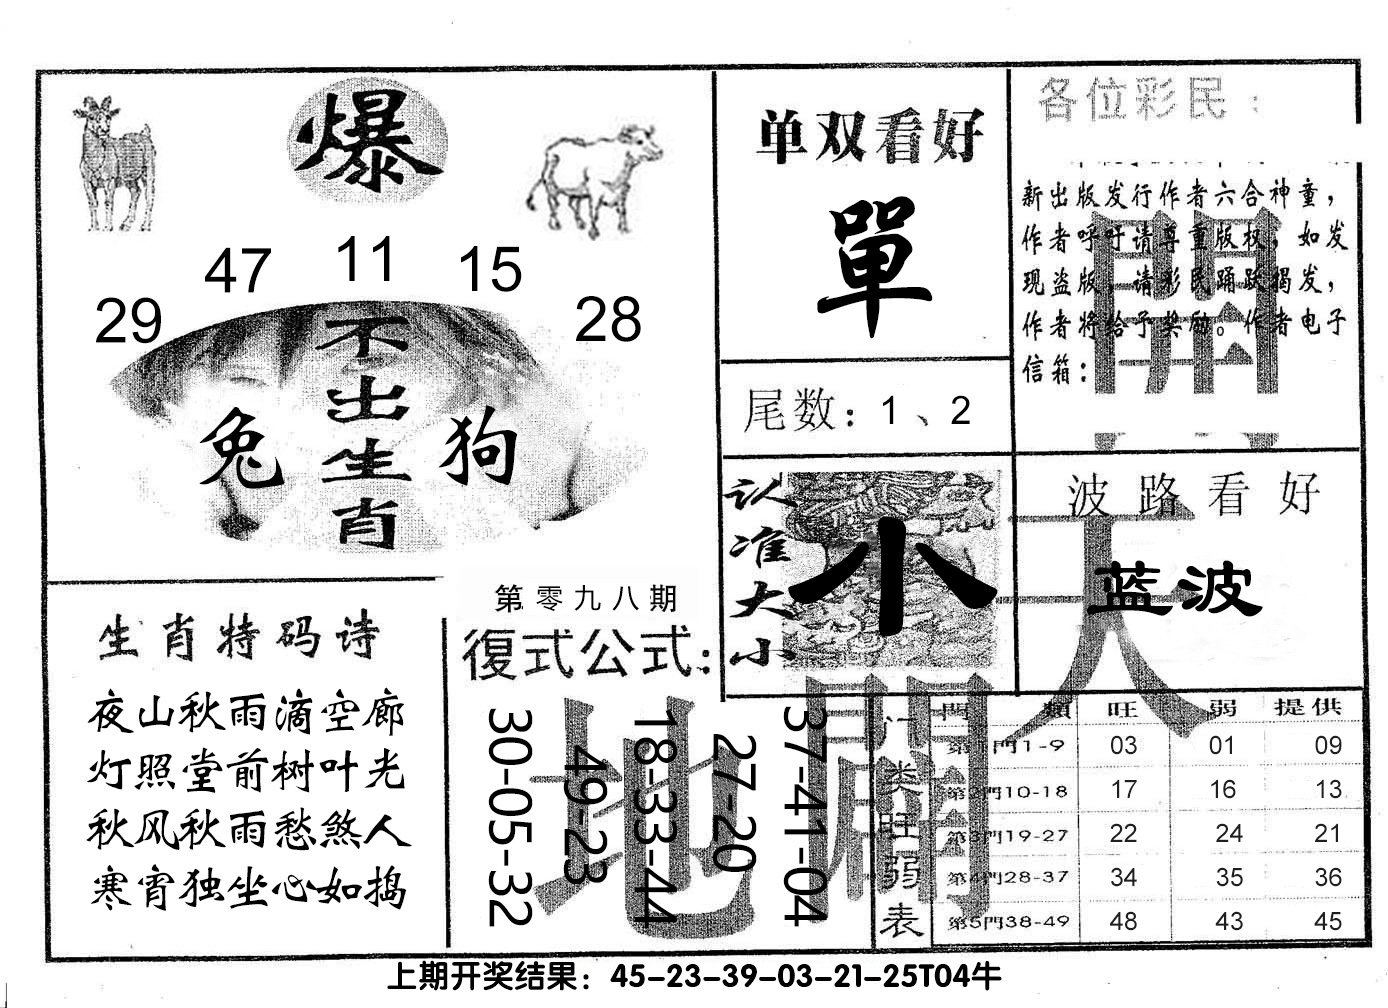 爆
29
47
11
15
28
不出生肖
兔
狗
单双看好
單
尾数：1、2
各位彩民：
新出版发行作者六合神童，
作者呼吁请尊重版权，如发
现盗版，请彩民踊跃揭发，
作者将给予奖励。作者电子
信箱：
開
认准大小
小
波路看好
蓝波
天
生肖特码诗
夜山秋雨滴空廊
灯照堂前树叶光
秋风秋雨愁煞人
寒宵独坐心如捣
第零九八期
復式公式：
30-05-32
49-23
18-33-44
27-20
37-41-04
地
開
门类旺弱表
門類 旺 弱 提供
門1-9 03 01 09
第2門10-18 17 16 13
第3門19-27 22 24 21
第4門28-37 34 35 36
第5門38-49 48 43 45
上期开奖结果：45-23-39-03-21-25T04牛